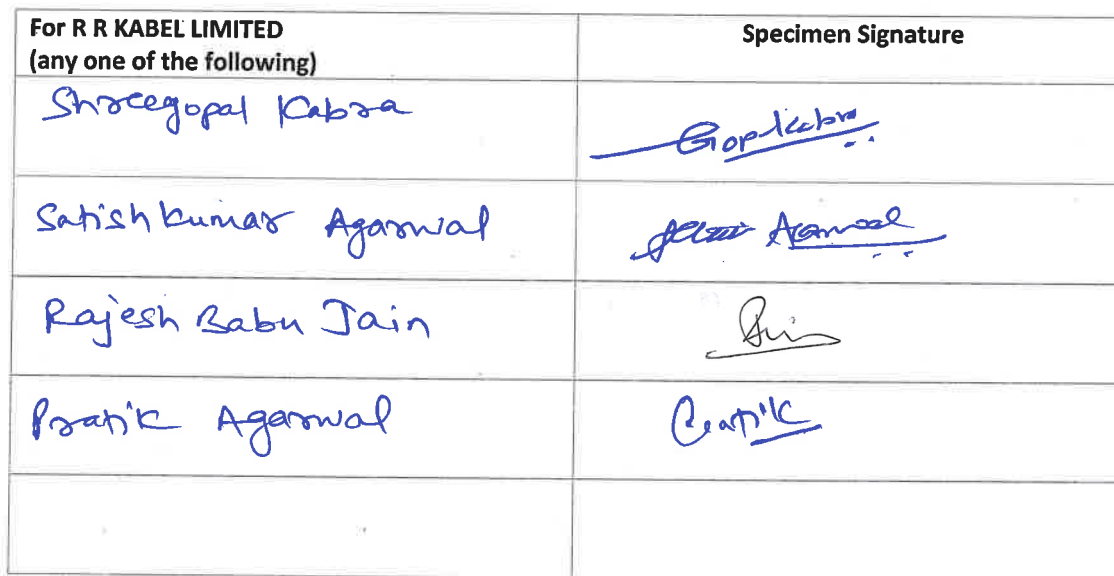 For R R KABEL LIMITED
(any one of the following)
Specimen Signature
Shreegopal Kabra
Gopkabra
Satishkumar Agarwal
Agarwal
Rajesh Babu Jain
Pratik Agarwal
Pratik